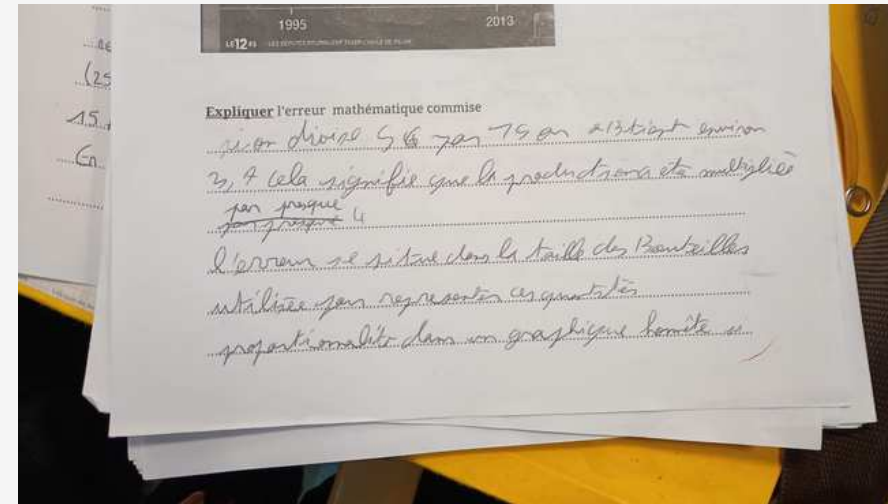 15
(25
En
1995 2013
LE12 45
Expliquer l'erreur mathématique commise
si on divise 56 par 15 on obtient environ
3,7 cela signifie que la production a été multipliée
par presque
par presque 4
l'erreur se situe dans la taille des Bouteilles
utilisée pour representer ces quantités
proportionnalité dans un graphique honnête si